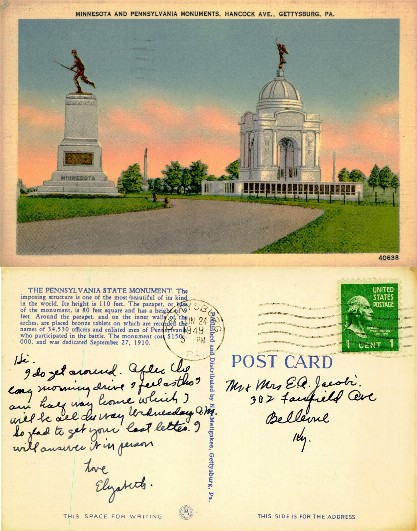 MINNESOTA AND PENNSYLVANIA MONUMENTS, HANCOCK AVE., GETTYSBURG, PA.
MINNESOTA
40638
THE PENNSYLVANIA STATE MONUMENT. The
imposing structure is one of the most beautiful of its kind
in the world. Its height is 110 feet. The parapet, or
of the monument, is 80 feet square and has a height of
feet. Around the parapet, and on the inner walls of the
arches, are placed bronze tablets on which are recorded the
names of 34,530 officers and enlisted men of Pennsylvania
who participated in the battle. The monument cost $150,-
000, and was dedicated September 27, 1910.
Hi.
I do get around. After the
long morning drive I feel as tho I
am half way home which I
will be all the way Wednesday A.M.
So glad to get your last letter. I
will answer it in person
Love
Elizabeth.
THIS SPACE FOR WRITING
Published and Distributed by Gettysburg, Pa.
JUN 24
1949
PM
UNITED
STATES
POSTAGE
1 CENT 1
POST CARD
Mr & Mrs E.A. Jacobi
302 Fairfield Ave
Bellevue
Ky.
THIS SIDE IS FOR THE ADDRESS